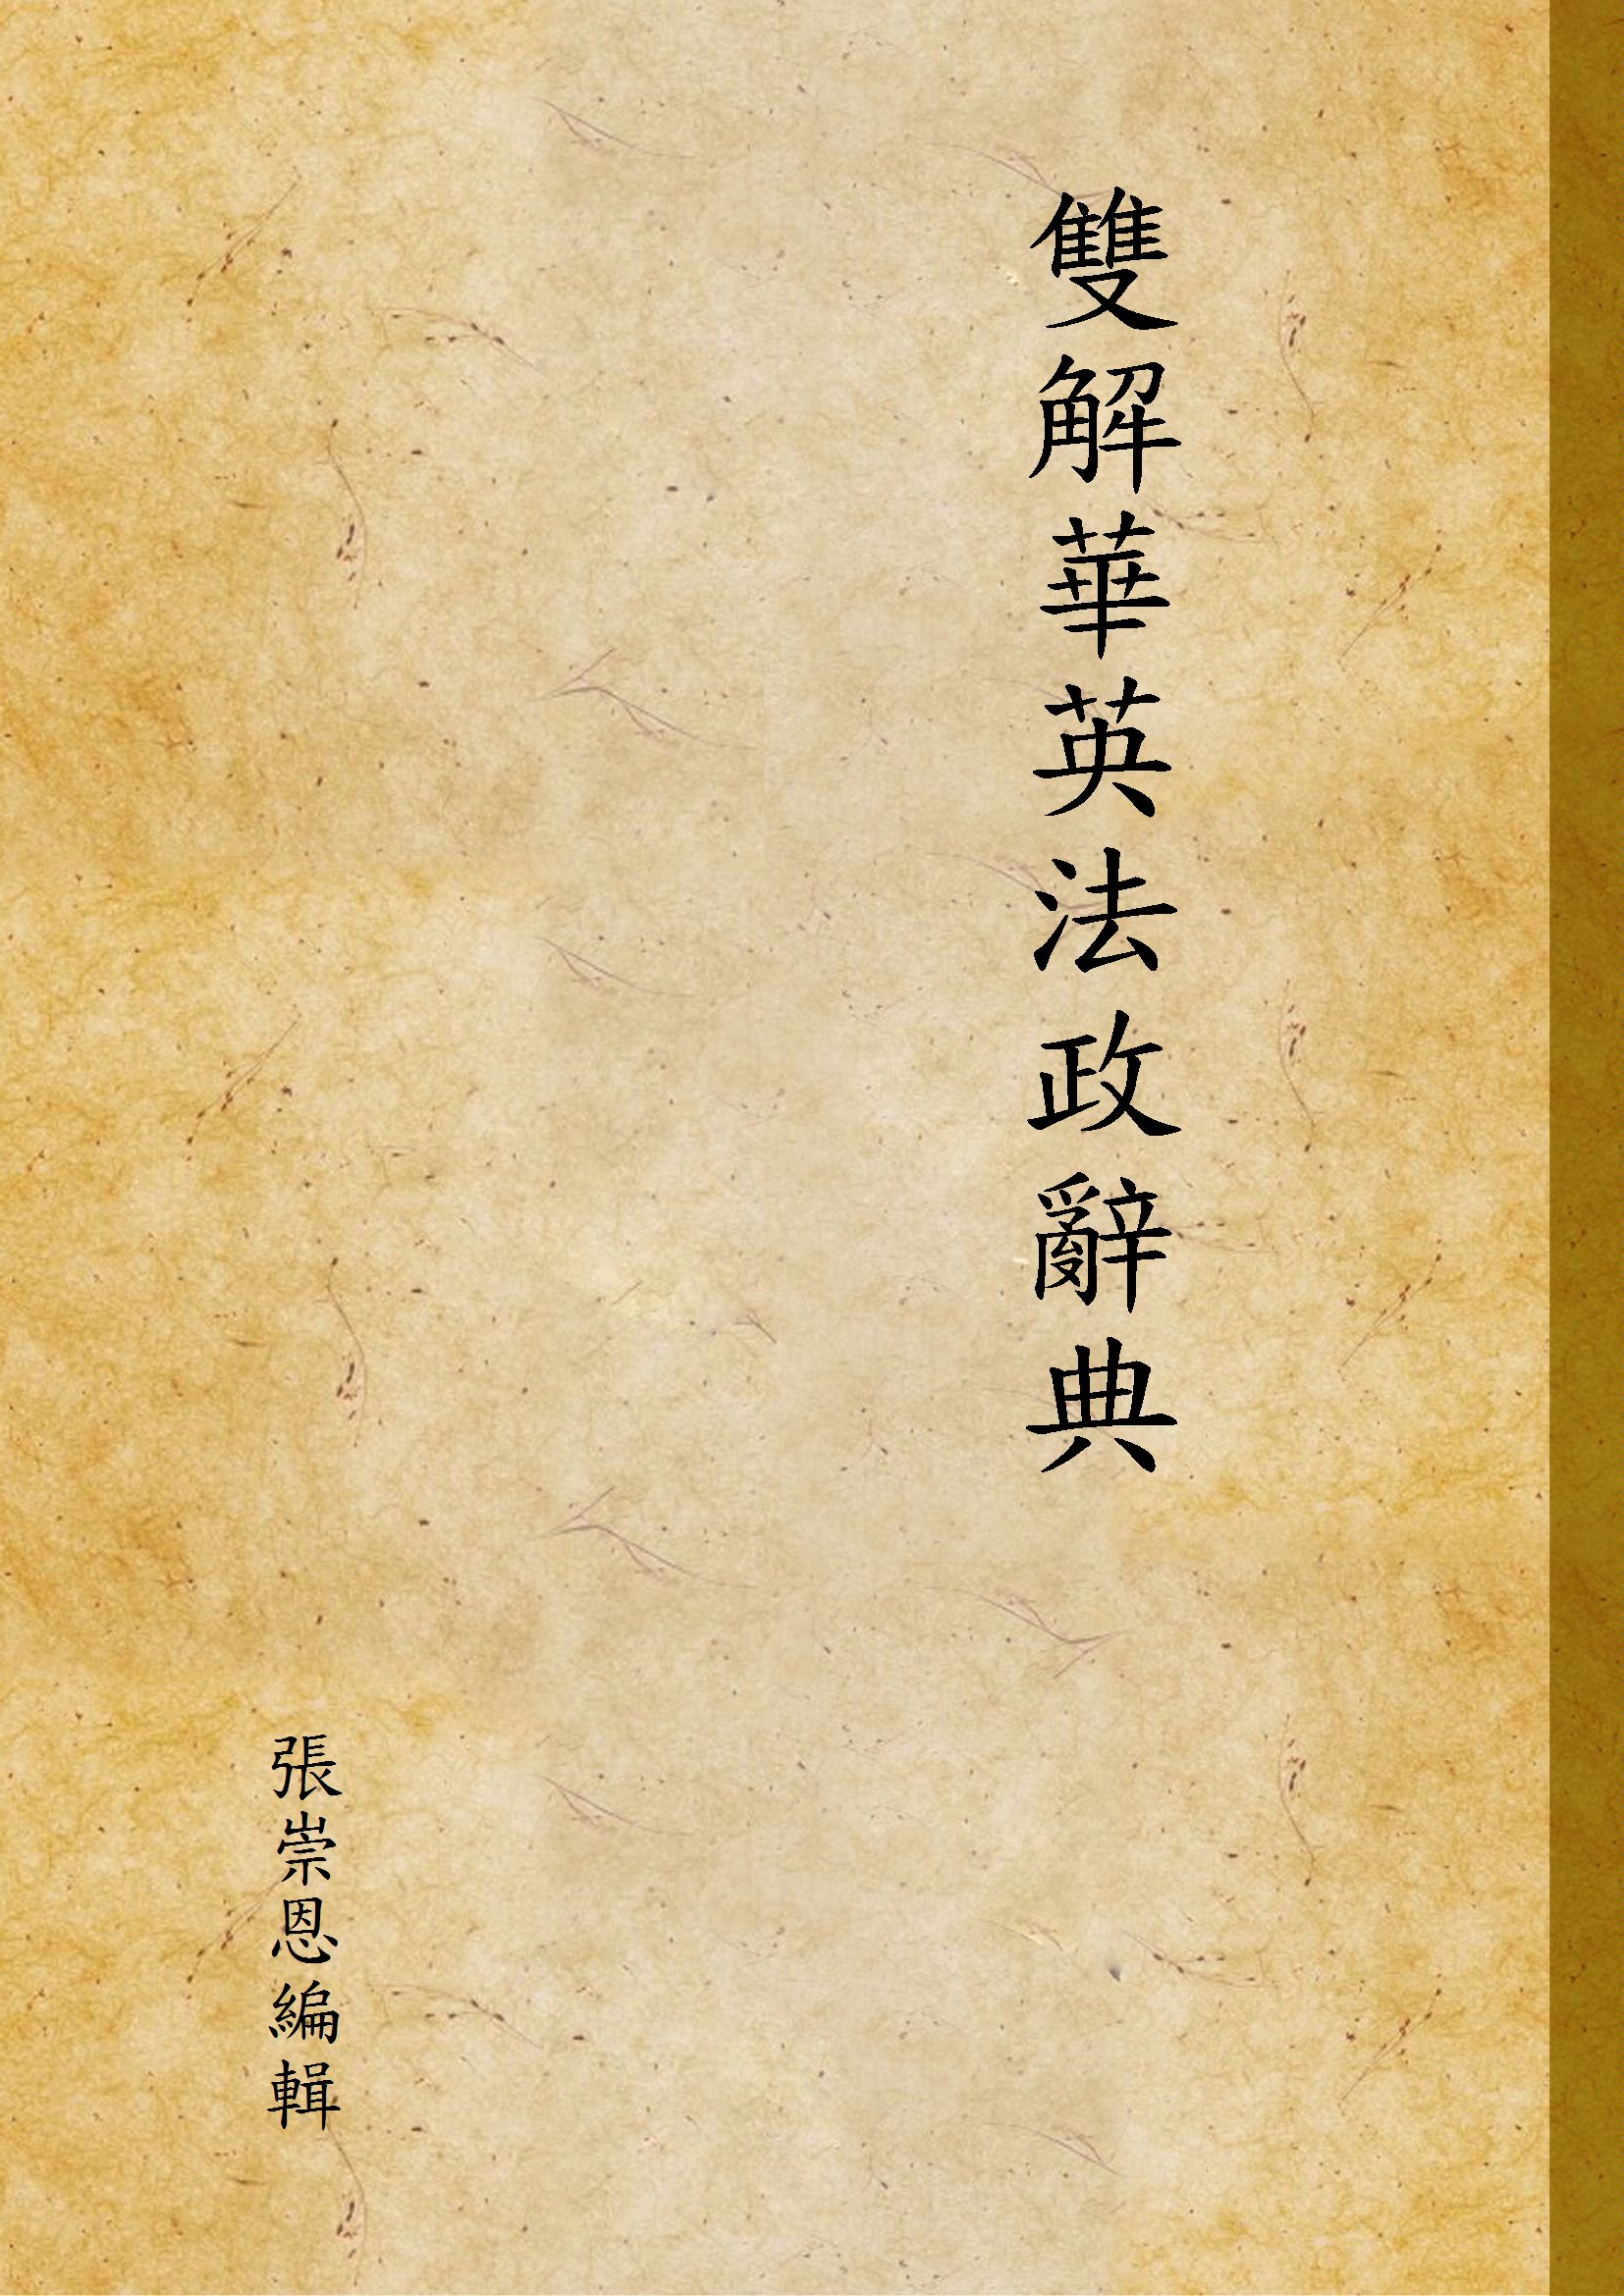 雙解華英法政辭典
張崇恩編輯